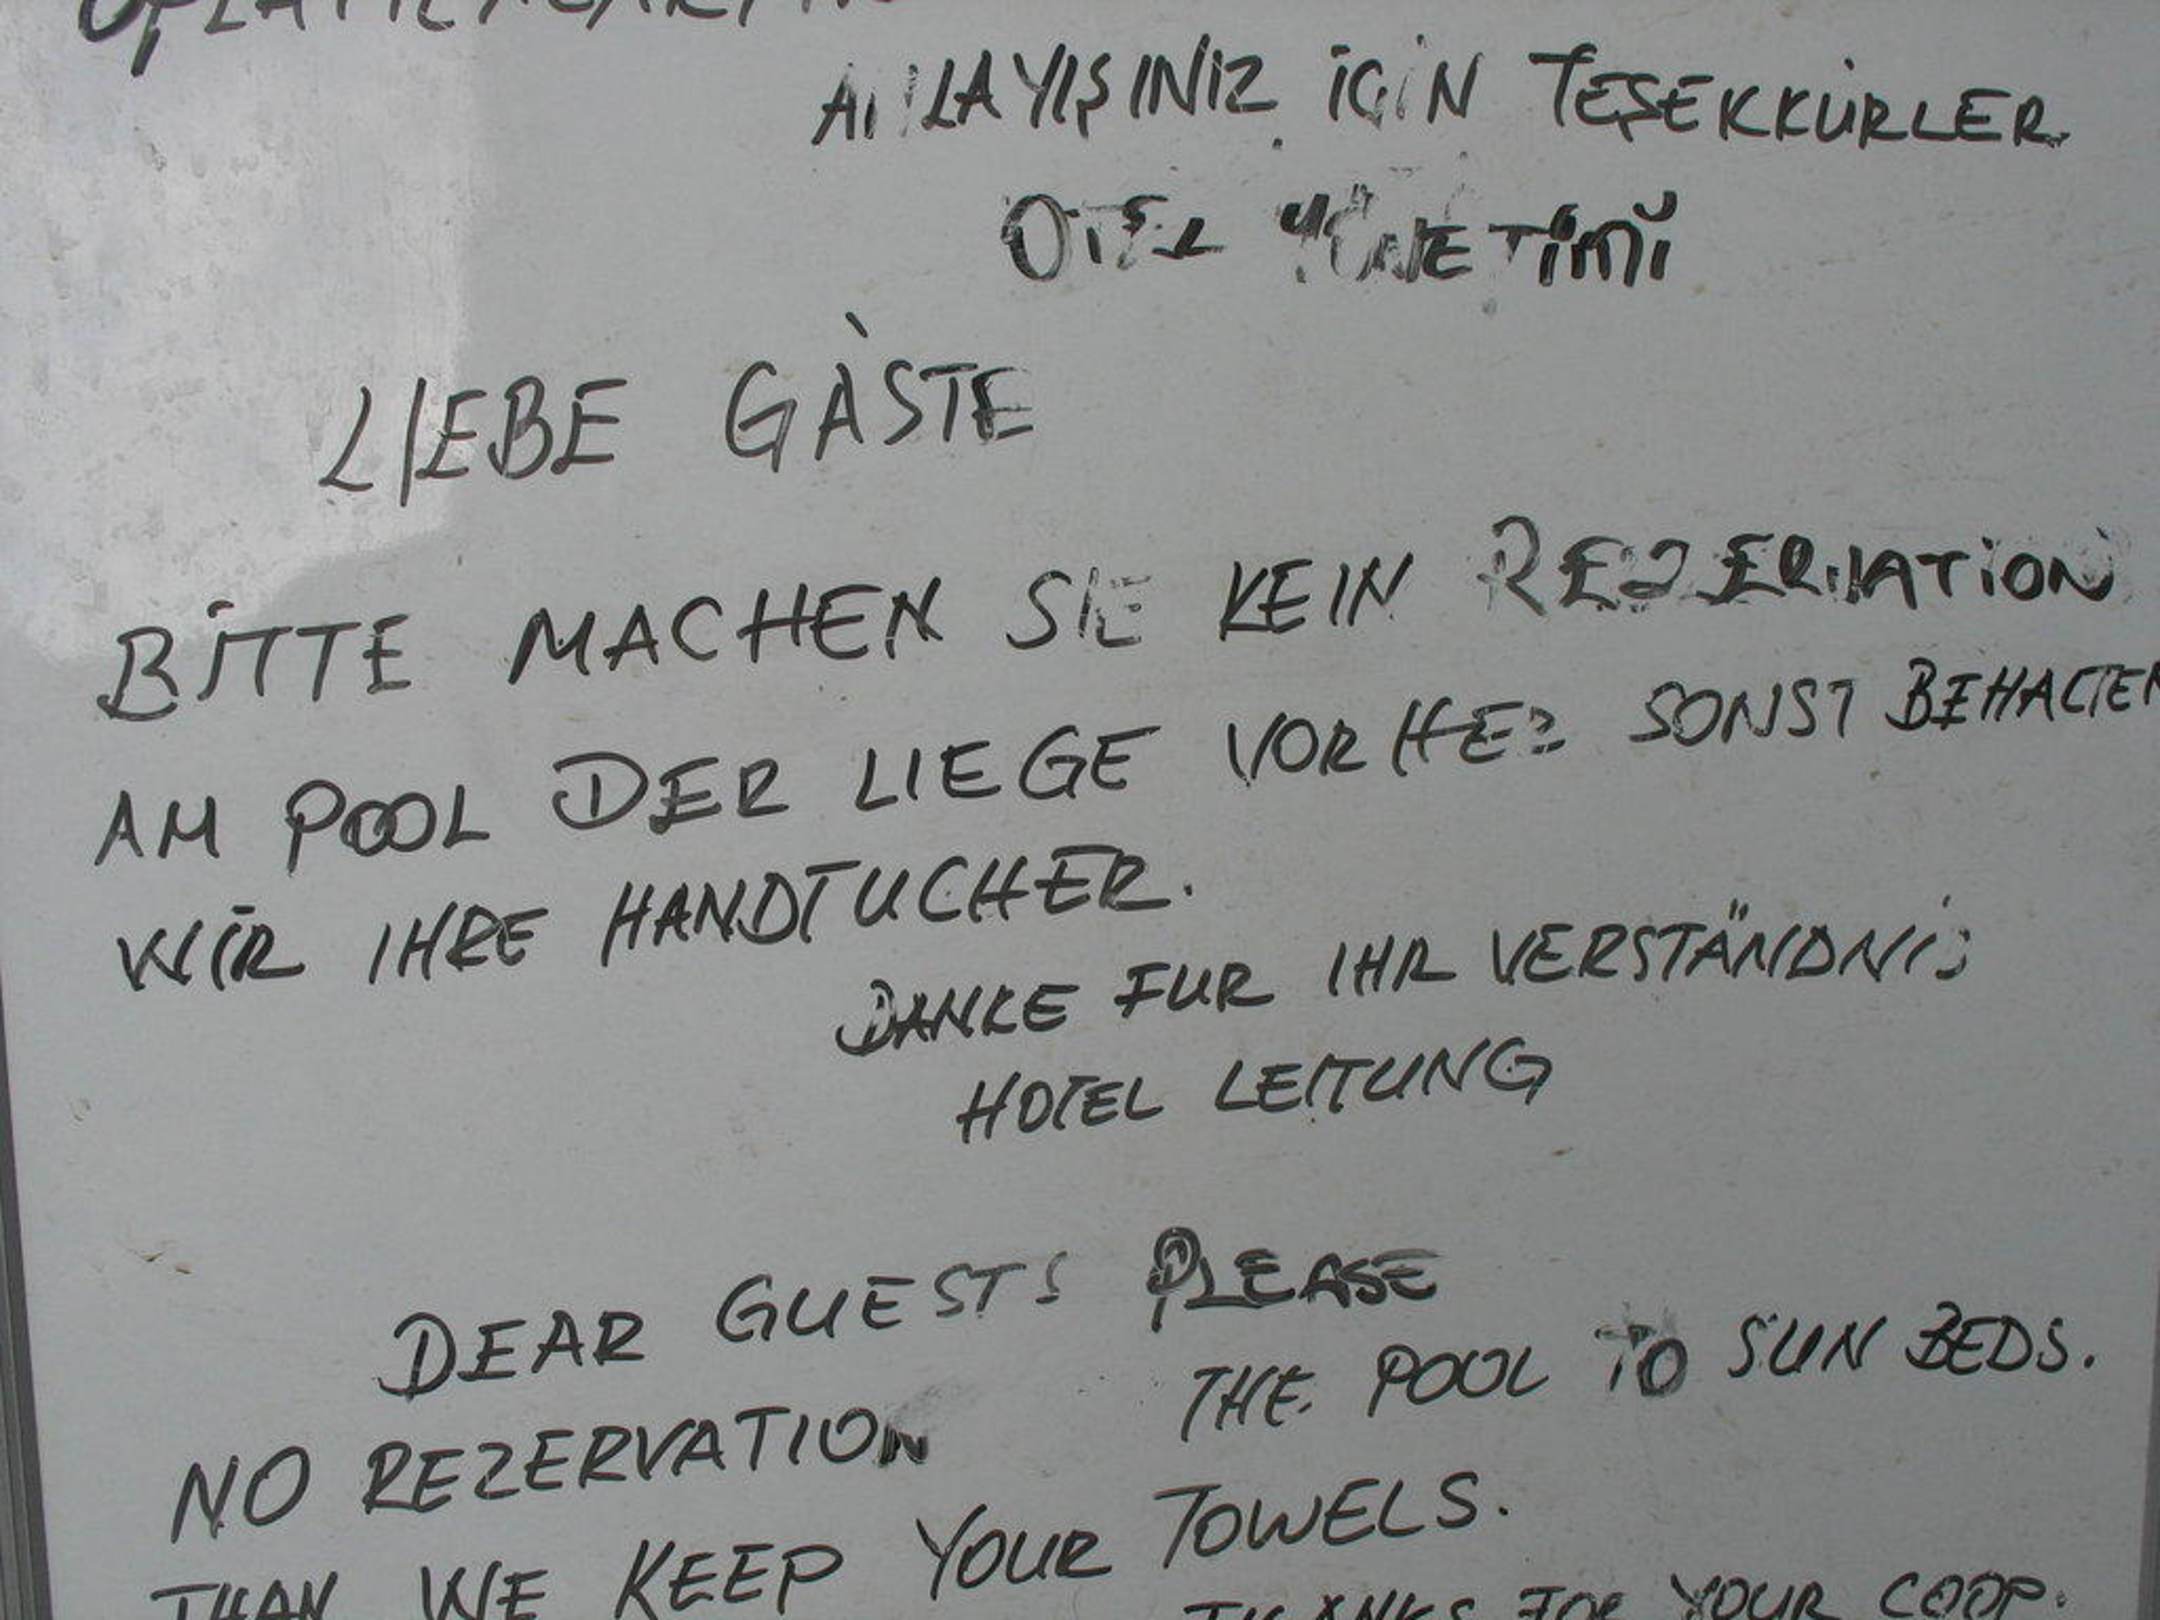 ANLAYIŞINIZ İÇİN TEŞEKKÜRLER
OTEL YÖNETİMİ
LIEBE GÀSTE
BİTTE MACHEN SIE KEIN REZERVATİON
AM POOL DER LIEGE VORHER SONST BEHALTEN
WİR IHRE HANDTUCHER.
DANKE FUR IHR VERSTÄNDNİS
HOTEL LEITUNG
DEAR GUESTS PLEASE
NO REZERVATION THE POOL TO SUN BEDS.
THAN WE KEEP YOUR TOWELS.
THANKS FOR YOUR COOP.